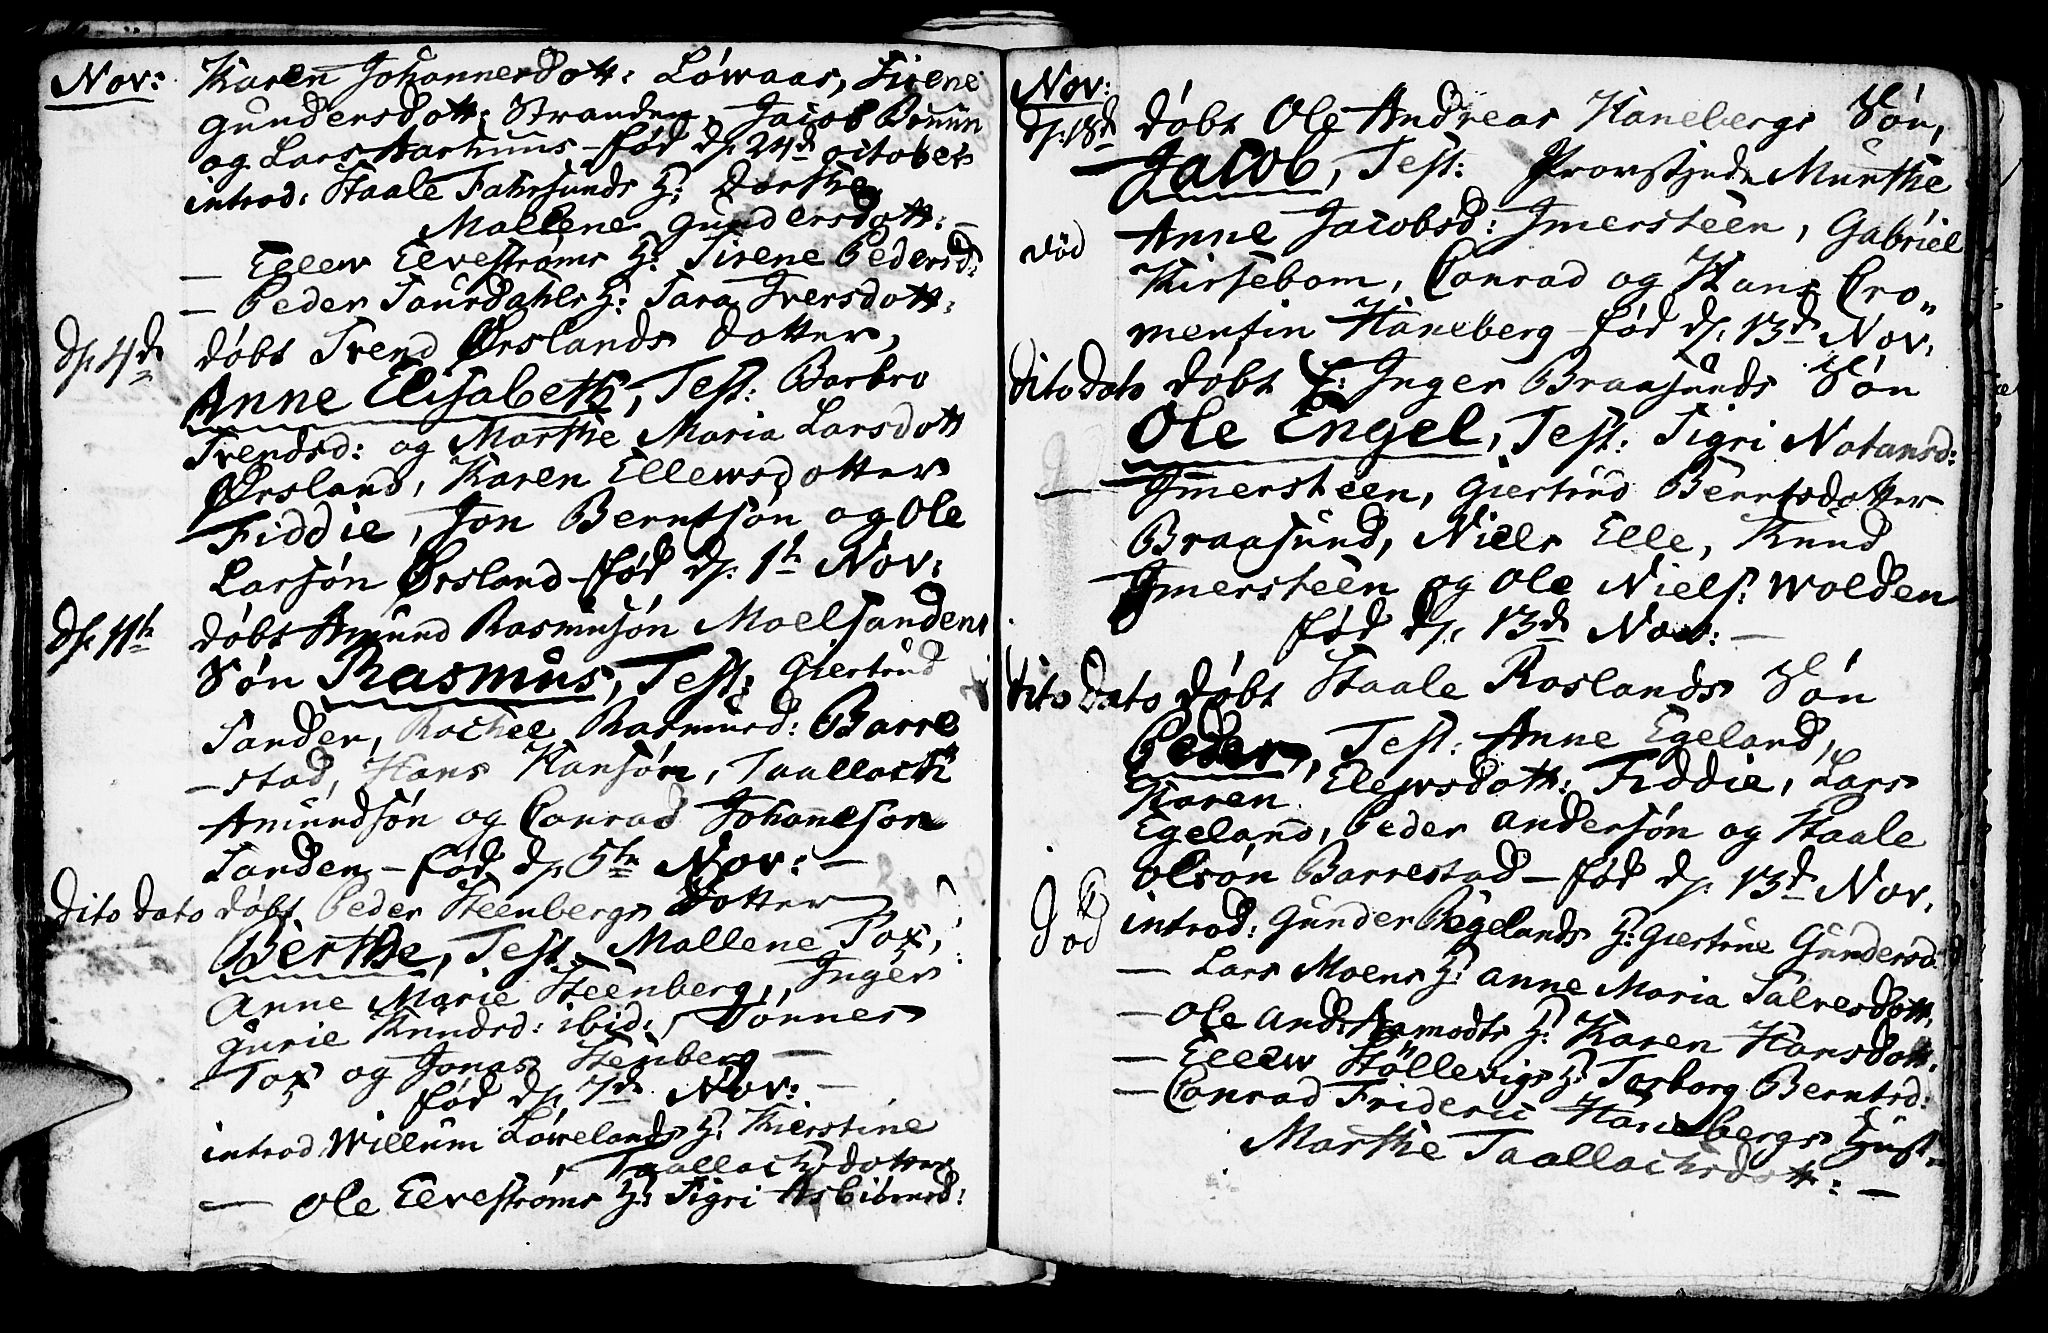 Nov: Karen Johannesdott: Løwaas, Sirene
Gundersdott: Stranden, Jacob Bruun
og Lars Aarhuus - fød d. 24de october
introd: Staale Fahrsunds H: Dorthe
Mallene Gundersdott: -
- Ellew Elvestrøms H: Sirene Pedersd:
- Peder Saurdahls H: Sara Iversdott:
d. 4de døbt Trend Ørslands Dotter,
Anne Elisabeth, Test: Barbro
Trendsd: og Marthe Maria Larsdott
Ørsland, Karen Ellewsdotter
Fiddie, Jon Berntsøn og Ole
Larsøn Ørsland - fød d. 1te Nov:
d. 11te døbt Amund Rasmusøn Moelsandens
Søn Rasmus, Test: Giertrud
Sanden, Rachel Rasmusd: Barre
-stad, Hans Hansøn, Taallach
Amundsøn og Conrad Johanneson
Sanden - fød d. 5te Nov: -
Dito Dato døbt Peder Steenbergs Dotter
Berthe, Test. Mallene Tox,
Anne Marie Steenberg, Inger
Gurie Knudsd: ibid:, Tønnes
Tox og Jonas Stenberg -
fød d. 7de Nov: -
introd Willum Løwelands H: Kierstine
Taallachsdotter
- Ole Elvestrøms H: Sigri Asbiørnsd:
Nov:
d. 18de døbt Ole Andreas Hanebergs Søn,
Jacob, Test: Provstinde Munthe
Anne Jacobsd: Imersteen, Gabriel
død
Kirsebom, Conrad og Hans Cro„
mensin Haneberg - fød d. 13de Nov.
Dito Dato døbt Inger Braasunds Søn
Ole Engel, Test: Sigri Notansd:
- Imersteen, Giertrud Berntsdotter
Braasund, Niels Elle, Knud
Imersteen og Ole Niels: Wolden
fød d. 13de Nov: -
Dito Dato døbt Staale Roslands Søn
Peder, Test: Anne Egeland,
Karen Elewsdott: Fiddie, Lars
Egeland, Peder Andersøn og Staale
Olsøn Barrestad - fød d. 13de Nov.
død
introd: Gunder Egelands H: Giertrue Gundersd.
- Lars Moens H: Anne Maria Salvesdott.
- Ole And: Aamodts H: Karen Hansdott.
- Ellew Støllevigs H: Torborg Berntsd:
- Conrad Frideric Hanebergs Hust„
Marthe Taallachsdott: -